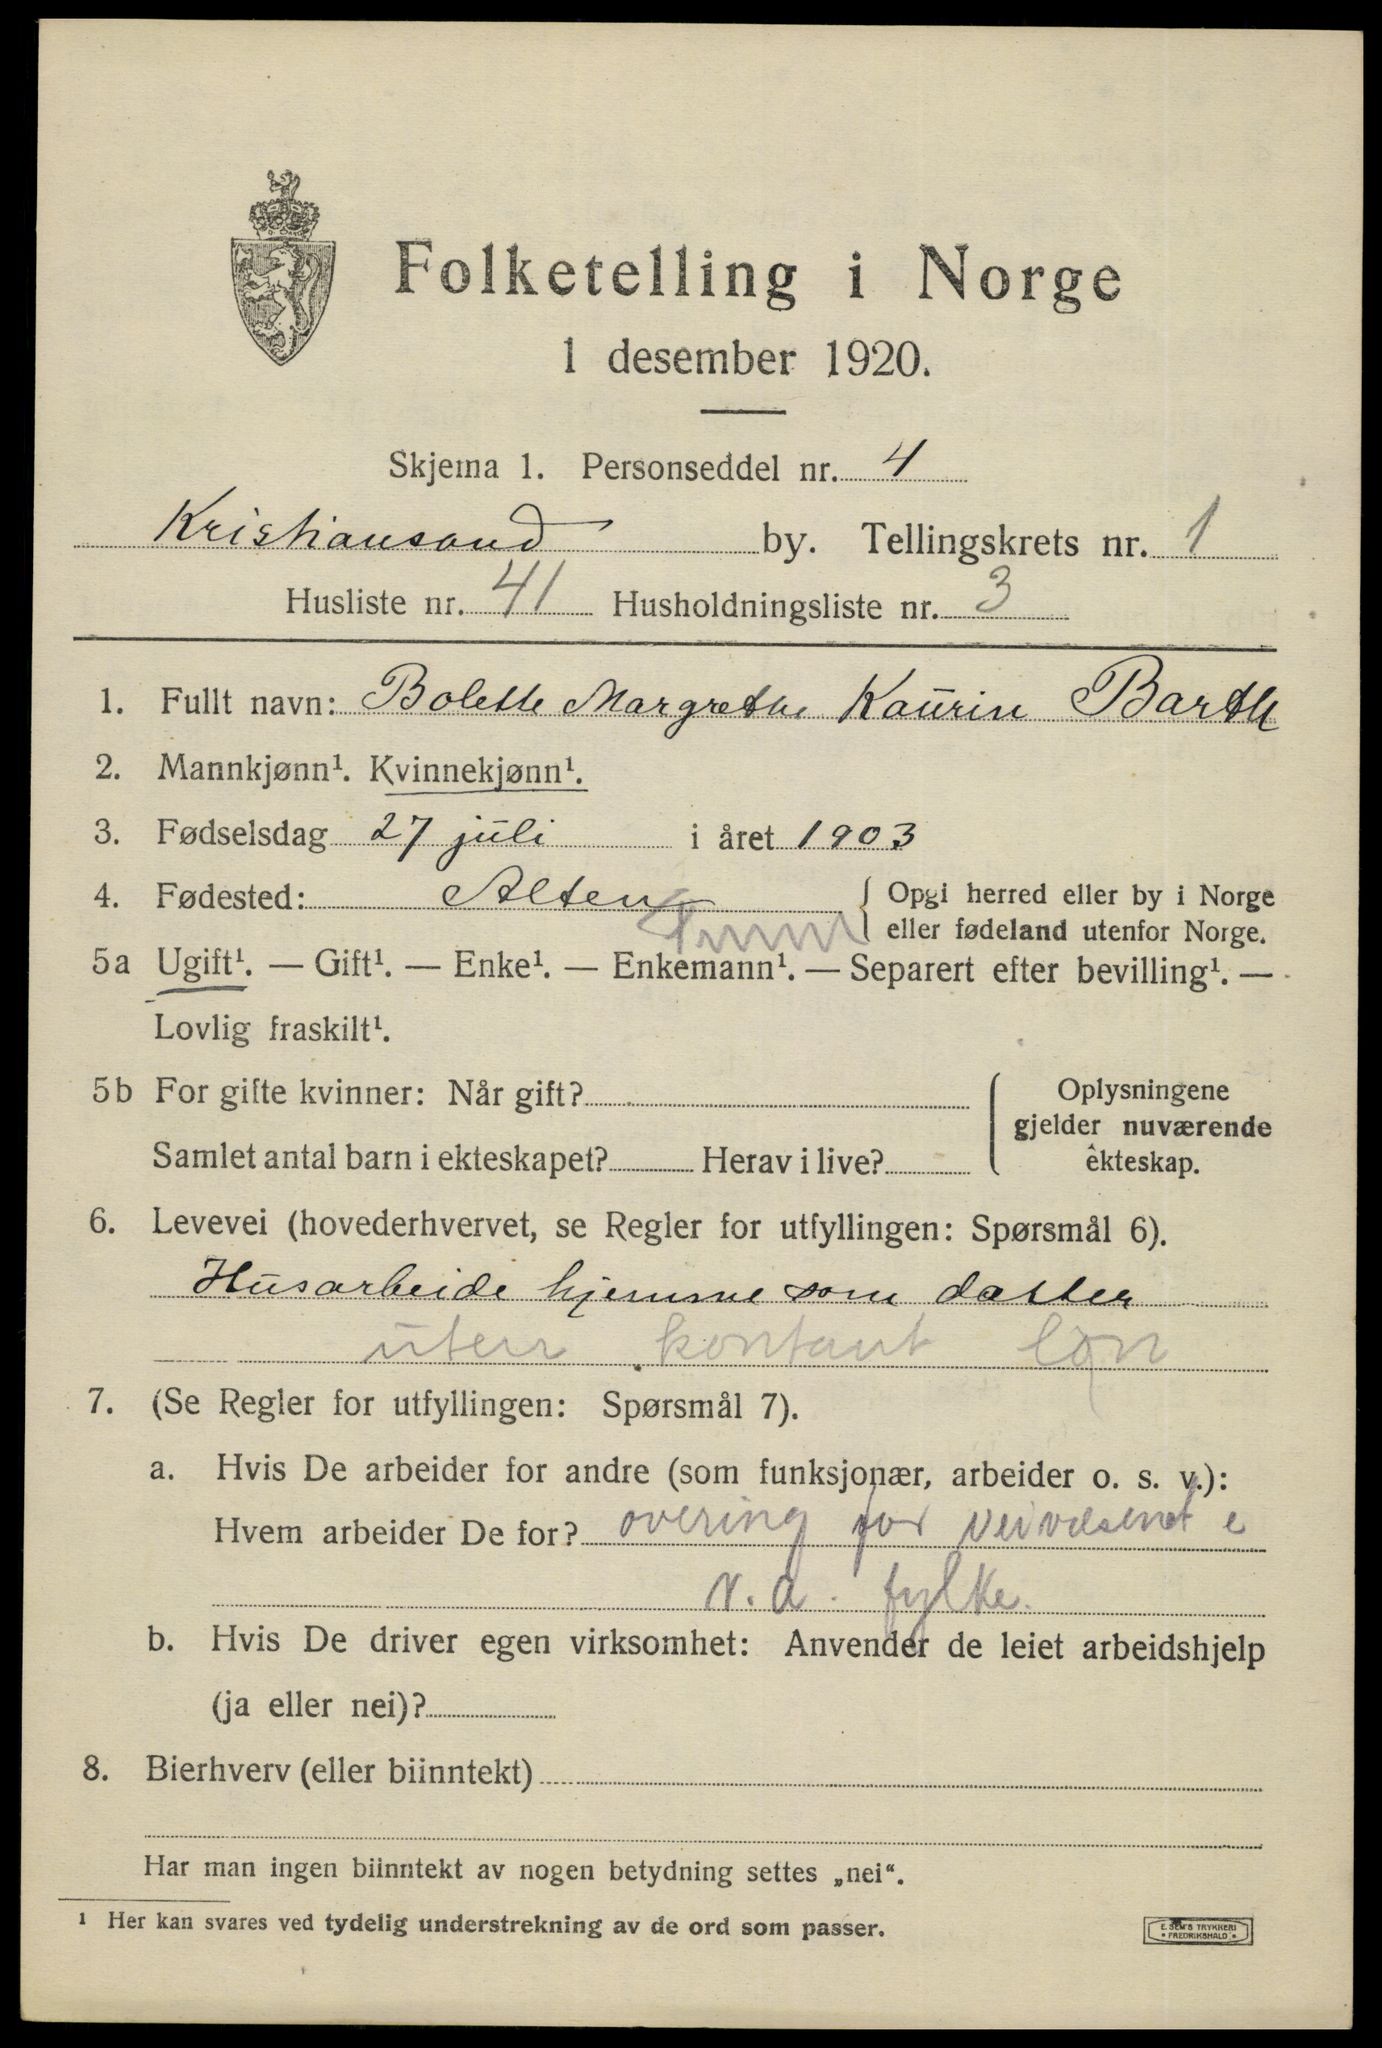 Folketelling i Norge
1 desember 1920.
Skjema 1. Personseddel nr. 4
Kristiansand by. Tellingskrets nr. 1
Husliste nr. 41 Husholdningsliste nr. 3
1. Fullt navn: Bolette Margrethe Kaurin Barth
2. Mannkjønn¹. Kvinnekjønn¹.
3. Fødselsdag 27 juli i året 1903
4. Fødested: Alten { Opgi herred eller by i Norge
eller fødeland utenfor Norge.
5a Ugift¹. — Gift¹. — Enke¹. — Enkemann¹. — Separert efter bevilling¹. —
Lovlig fraskilt¹.
5b For gifte kvinner: Når gift? { Oplysningene
gjelder nuværende
Samlet antal barn i ekteskapet? Herav i live? ekteskap.
6. Levevei (hovederhvervet, se Regler for utfyllingen: Spørsmål 6).
Husarbeide hjemme som datter
uten kontant løn
7. (Se Regler for utfyllingen: Spørsmål 7).
a. Hvis De arbeider for andre (som funksjonær, arbeider o. s. v.):
Hvem arbeider De for? overing for veivæsenet i
v. a. fylke.
b. Hvis De driver egen virksomhet: Anvender de leiet arbeidshjelp
(ja eller nei)?
8. Bierhverv (eller biinntekt)
Har man ingen biinntekt av nogen betydning settes „nei“.
¹ Her kan svares ved tydelig understrekning av de ord som passer.
E. SEM'S TRYKKERI
• FREDRIKSHALD •